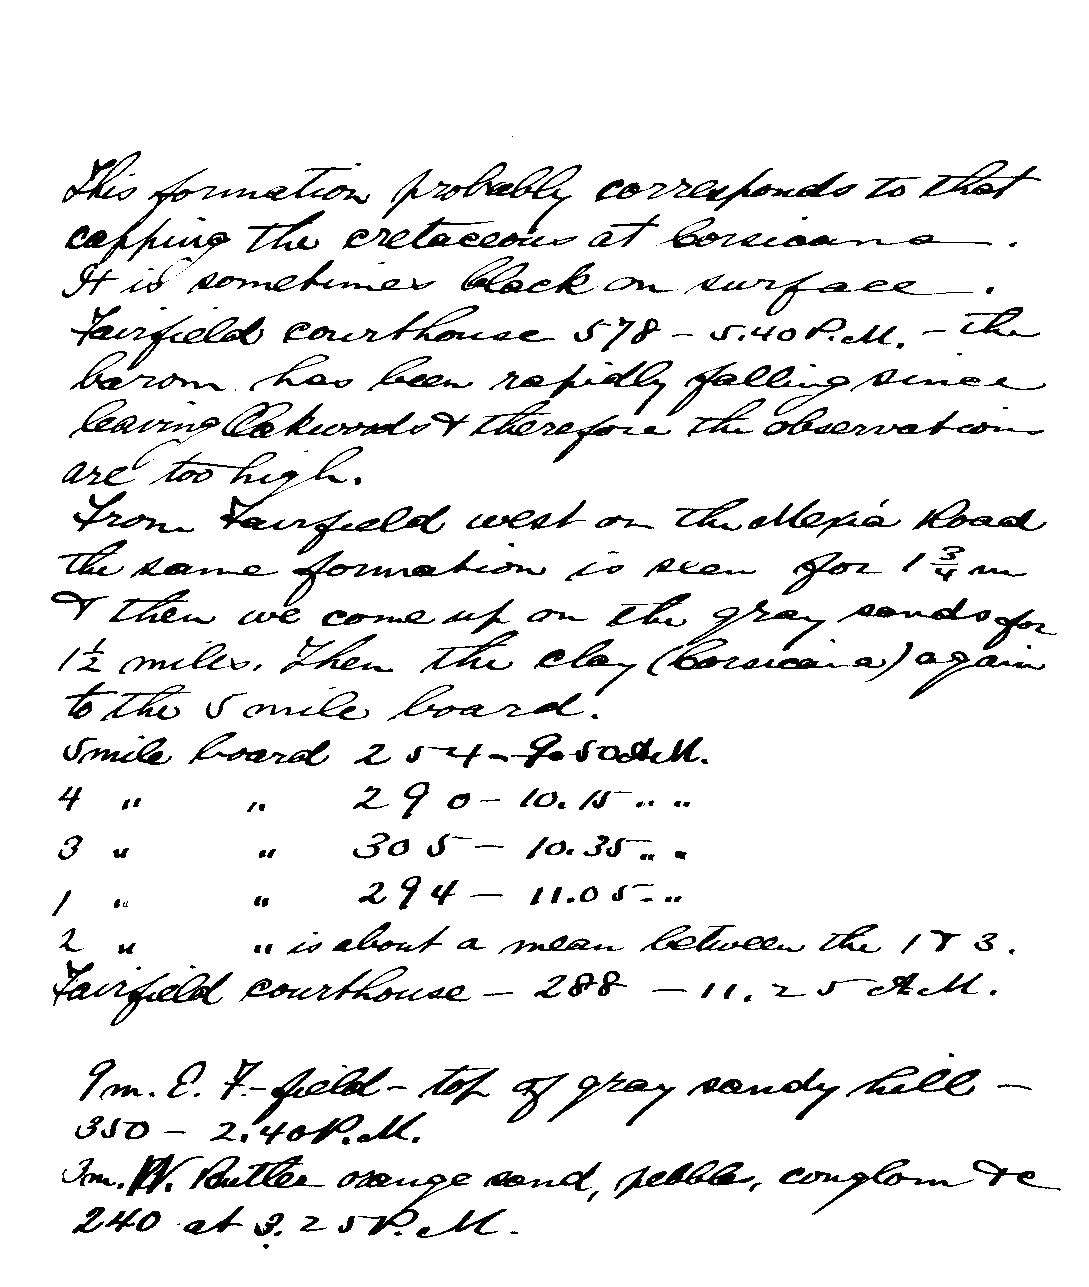 This formation probably corresponds to that
capping the cretaceous at Corsicana.
It is sometimes black on surface.
Fairfield courthouse 578 - 5.40 P.M. - the
barom. has been rapidly falling since
leaving Oakwoods & therefore the observations
are too high.
From Fairfield west on the Mexia Road
the same formation is seen for 1 3/4 m
& then we come up on the gray sands for
1 1/2 miles. Then the clay (Corsicana) again
to the 5 mile board.
5 mile board 254 - 9.50 A.M.
4 " " 290 - 10.15 " "
3 " " 305 - 10.35 " "
1 " " 294 - 11.05 " "
2 " " is about a mean between the 1 & 3.
Fairfield courthouse - 288 - 11.25 A.M.
9 m. E. F-field - top of gray sandy hill -
350 - 2.40 P.M.
3 m. W. Butler orange sand, pebbles, conglom &c
240 at 3.25 P.M.